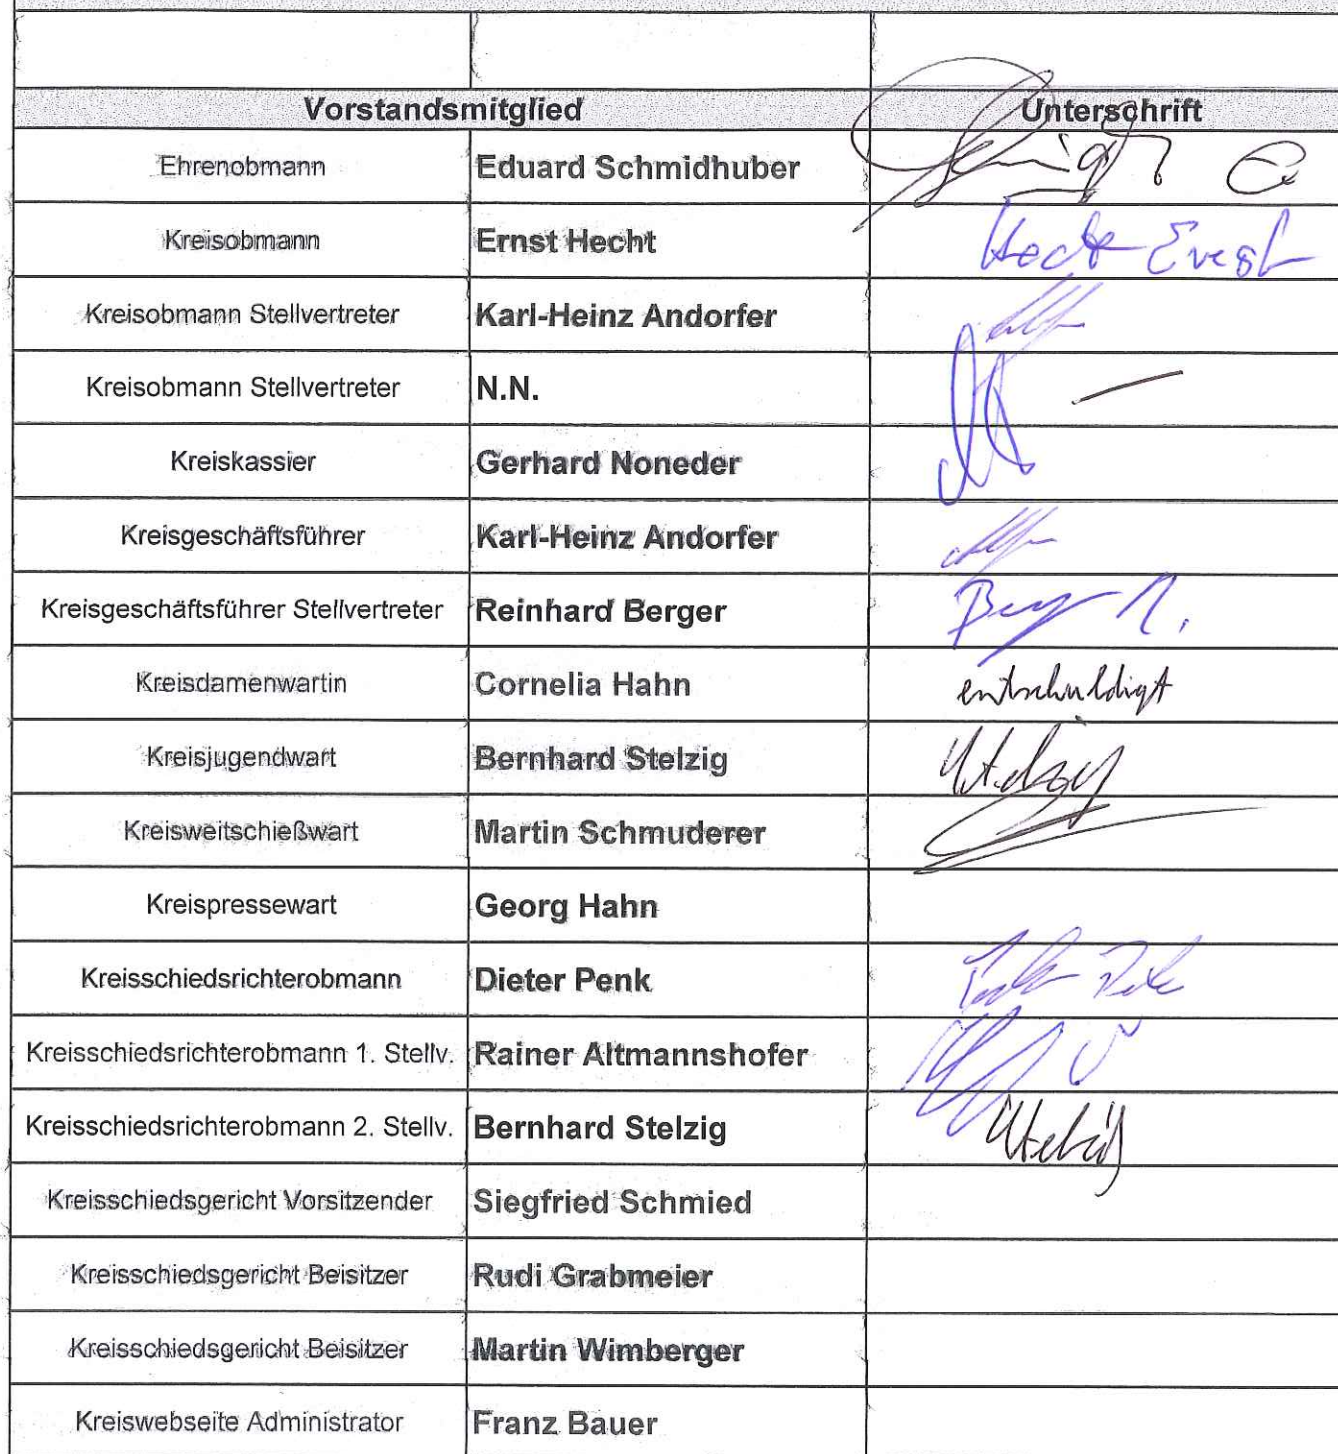 Vorstandsmitglied Unterschrift
Ehrenobmann Eduard Schmidhuber
Kreisobmann Ernst Hecht Hecht Ernst
Kreisobmann Stellvertreter Karl-Heinz Andorfer
Kreisobmann Stellvertreter N.N. —
Kreiskassier Gerhard Noneder
Kreisgeschäftsführer Karl-Heinz Andorfer
Kreisgeschäftsführer Stellvertreter Reinhard Berger
Kreisdamenwartin Cornelia Hahn entschuldigt
Kreisjugendwart Bernhard Stelzig
Kreisweitschießwart Martin Schmuderer
Kreispressewart Georg Hahn
Kreisschiedsrichterobmann Dieter Penk
Kreisschiedsrichterobmann 1. Stellv. Rainer Altmannshofer
Kreisschiedsrichterobmann 2. Stellv. Bernhard Stelzig
Kreisschiedsgericht Vorsitzender Siegfried Schmied
Kreisschiedsgericht Beisitzer Rudi Grabmeier
Kreisschiedsgericht Beisitzer Martin Wimberger
Kreiswebseite Administrator Franz Bauer